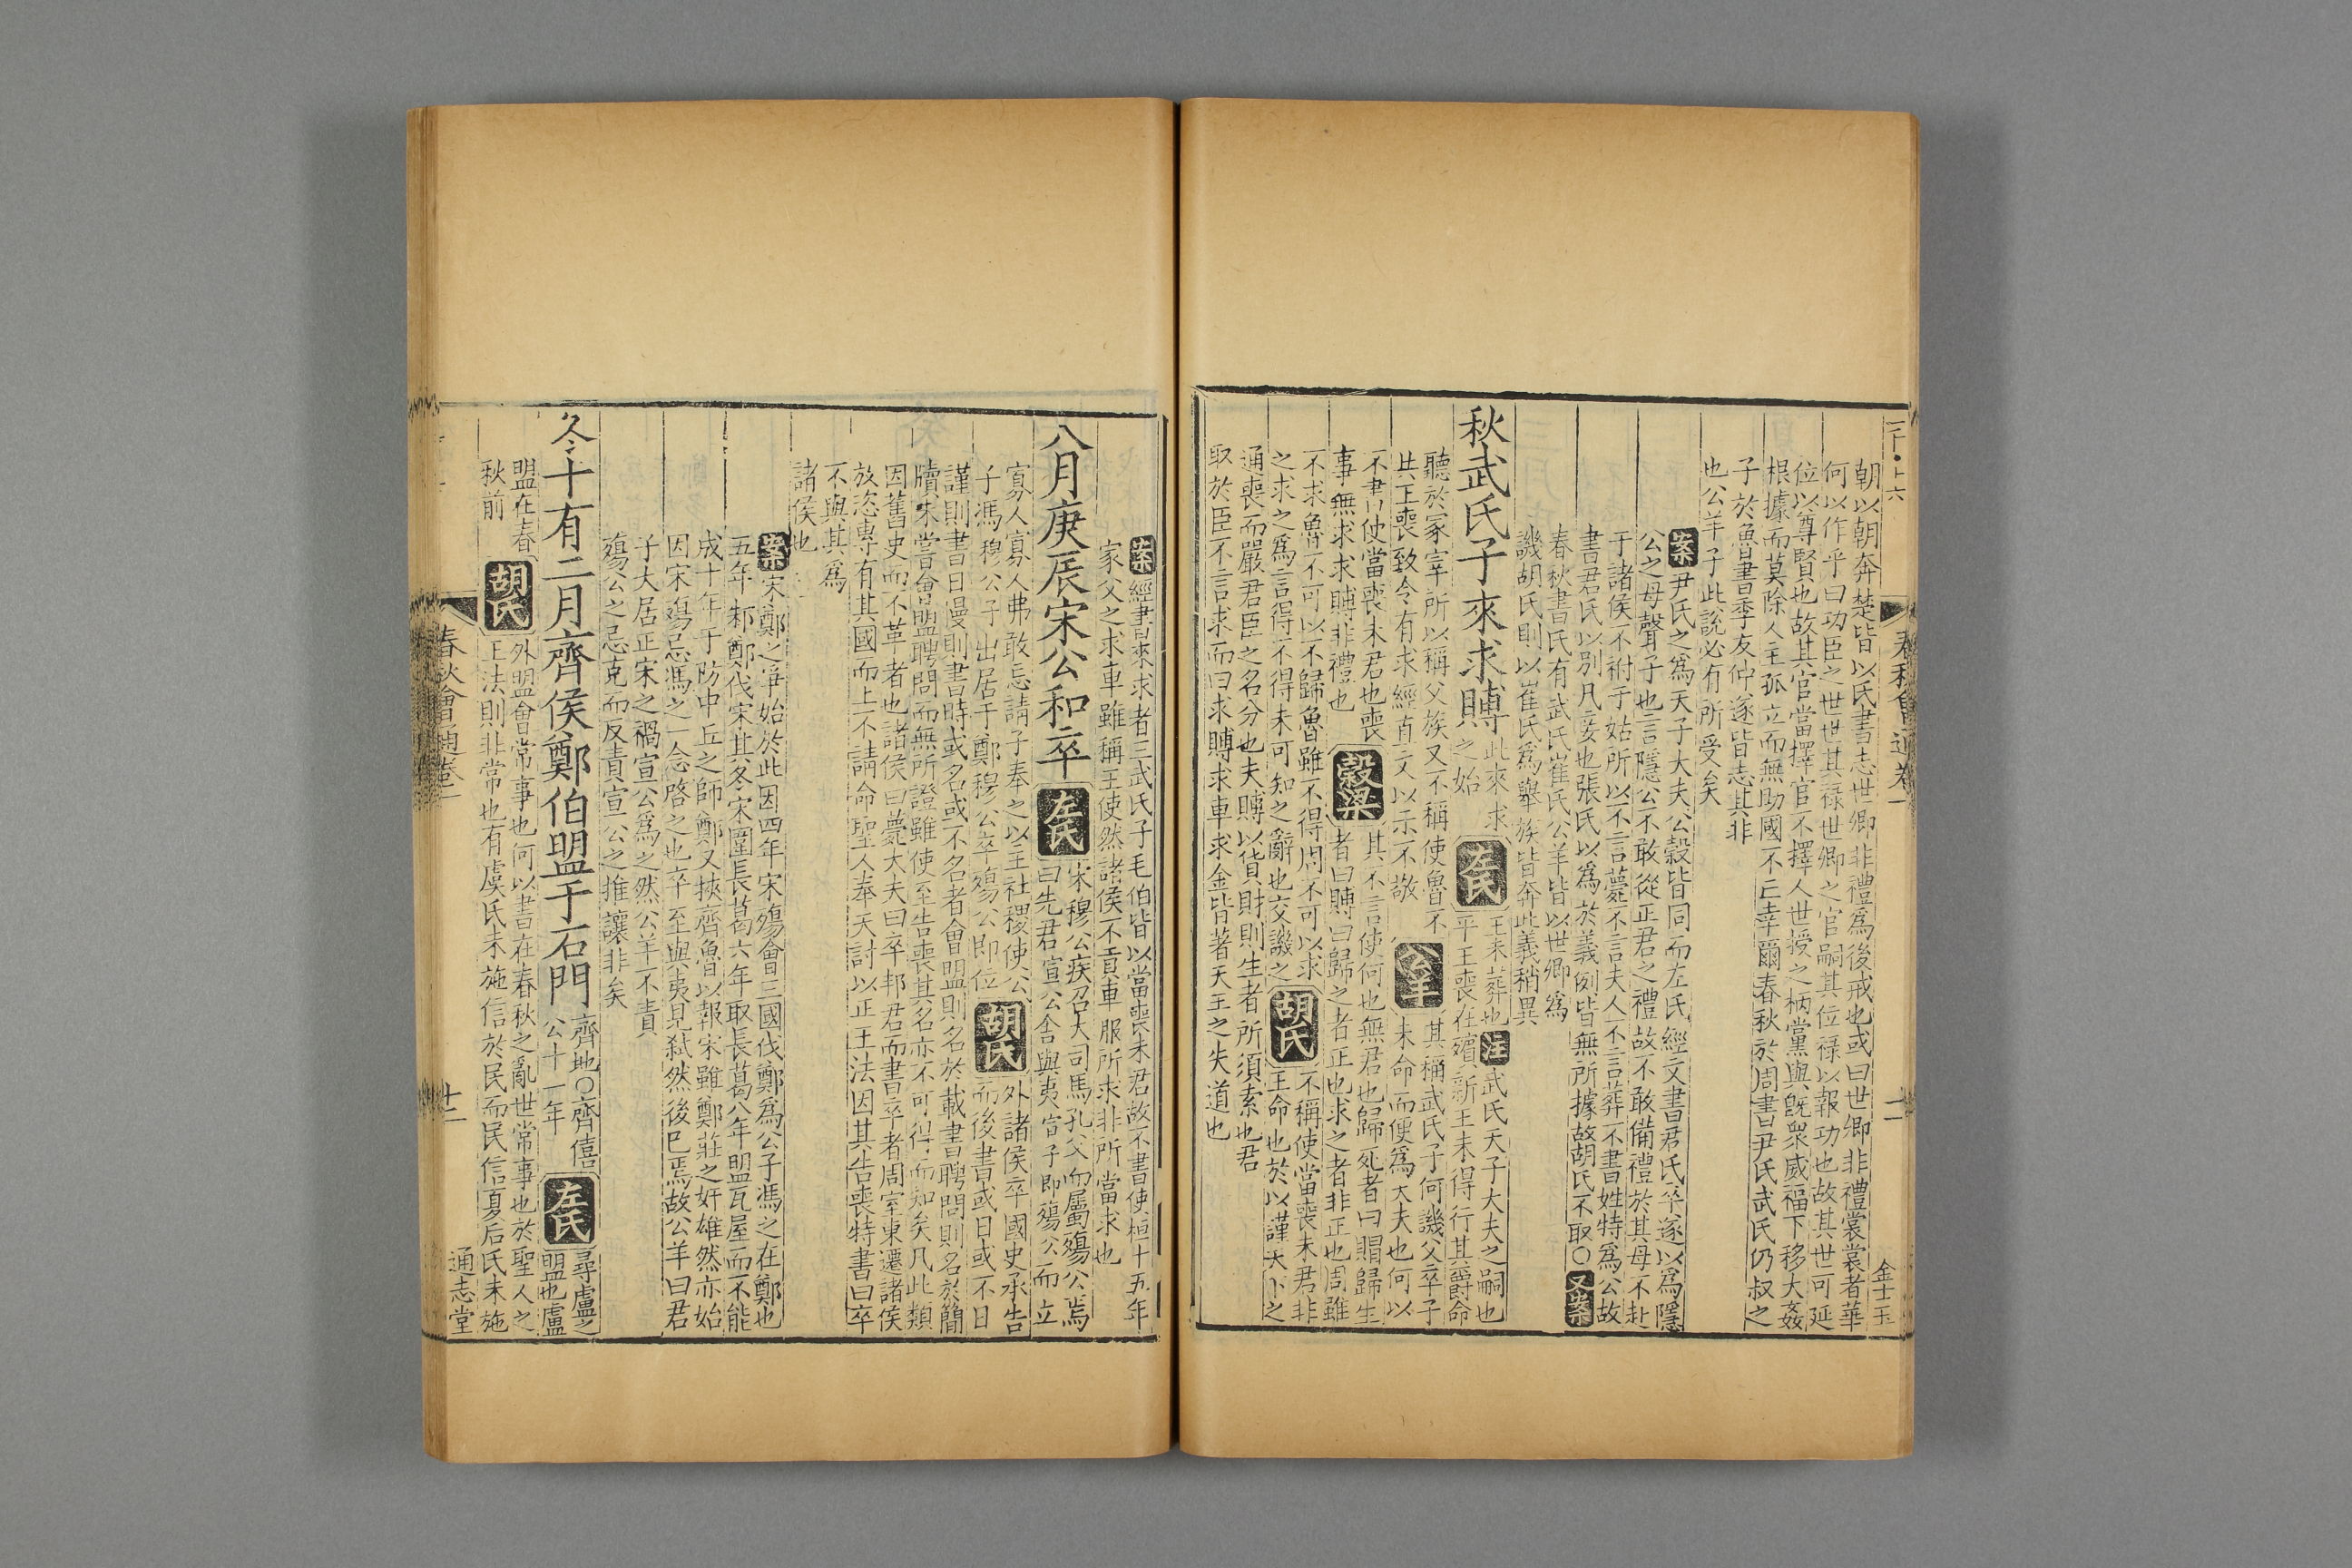 三个·上六
春秋會通卷一
十一
金士玉
朝以朝奔楚皆以氏書志世卿非禮爲後戒也或曰世卿非禮裳裳者華
何以作乎曰功臣之世世其祿世卿之官嗣其位祿以報功也故其世可延
位以尊賢也故其官當擇官不擇人世授之柄黨與旣衆威福下移大姦
根據而莫除人主孤立而無助國不亡幸爾春秋於周書尹氏武氏仍叔之
子於魯書季友仲遂皆志其非
也公羊子此說必有所受矣
案尹氏之爲天子大夫公穀皆同而左氏經文書君氏卒遂以爲隱
公之母聲子也言隱公不敢從正君之禮故不敢備禮於其母不赴
于諸侯不祔于姑所以不言薨不言夫人不言葬不書姓特爲公故
書君氏以別凡妾也張氏以爲於義例皆無所據故胡氏不取○又案
春秋書氏有武氏崔氏公羊皆以世卿爲
譏胡氏則以崔氏爲舉族皆奔此義稍異
秋武氏子來求賻
此來求
之始
左氏
王未葬也注武氏天子大夫之嗣也
平王喪在殯新王未得行其爵命
聽於冢宰所以稱父族又不稱使魯不
共王喪致令有求經直文以示不敬
公羊
其稱武氏子何譏父卒子
未命而便爲大夫也何以
不書使當喪未君也喪
事無求求賻非禮也
穀梁
其不言使何也無君也歸死者曰賵歸生
者曰賻曰歸之者正也求之者非正也周雖
不求魯不可以不歸魯雖不得周不可以求
之求之爲言得不得未可知之辭也交譏之
胡氏
不稱使當喪未君非
王命也於以謹天下之
通喪而嚴君臣之名分也夫賻以貨財則生者所須索也君
取於臣不言求而曰求賻求車求金皆著天王之失道也
案經書來求者三武氏子毛伯皆以當喪未君故不書使桓十五年
家父之求車雖稱王使然諸侯不貢車服所求非所當求也
八月庚辰宋公和卒
左氏
宋穆公疾召大司馬孔父而屬殤公焉
曰先君宣公舍與夷宣子即殤公而立
寡人寡人弗敢忘請子奉之以主社稷使公
子馮穆公子出居于鄭穆公卒殤公即位
胡氏
外諸侯卒國史承告
而後書或日或不日
謹則書日慢則書時或名或不名者會盟則名於載書聘問則名於簡
牘未嘗會盟聘問而無所證雖使至告喪其名亦不可得而知矣凡此類
因舊史而不革者也諸侯曰薨大夫曰卒邦君而書卒者周室東遷諸侯
放恣專有其國而上不請命聖人奉天討以正王法因其告喪特書曰卒
不與其爲
諸侯也
案宋鄭之爭始於此因四年宋殤會三國伐鄭爲公子馮之在鄭也
五年邾鄭伐宋其冬宋圍長葛六年取長葛八年盟瓦屋而不能
成十年于防中丘之師鄭又挾齊魯以報宋雖鄭莊之奸雄然亦始
因宋殤忌馮之一念啓之也卒至與夷見弒然後已焉故公羊曰君
子大居正宋之禍宣公爲之然公羊不責
殤公之忌克而反責宣公之推讓非矣
冬十有二月齊侯鄭伯盟于石門
齊地○齊僖
公十一年
左氏
尋盧之
盟也盧
盟在春
秋前
胡氏
外盟會常事也何以書在春秋之亂世常事也於聖人之
王法則非常也有虞氏未施信於民而民信夏后氏未施
春秋會通卷一
十二
通志堂